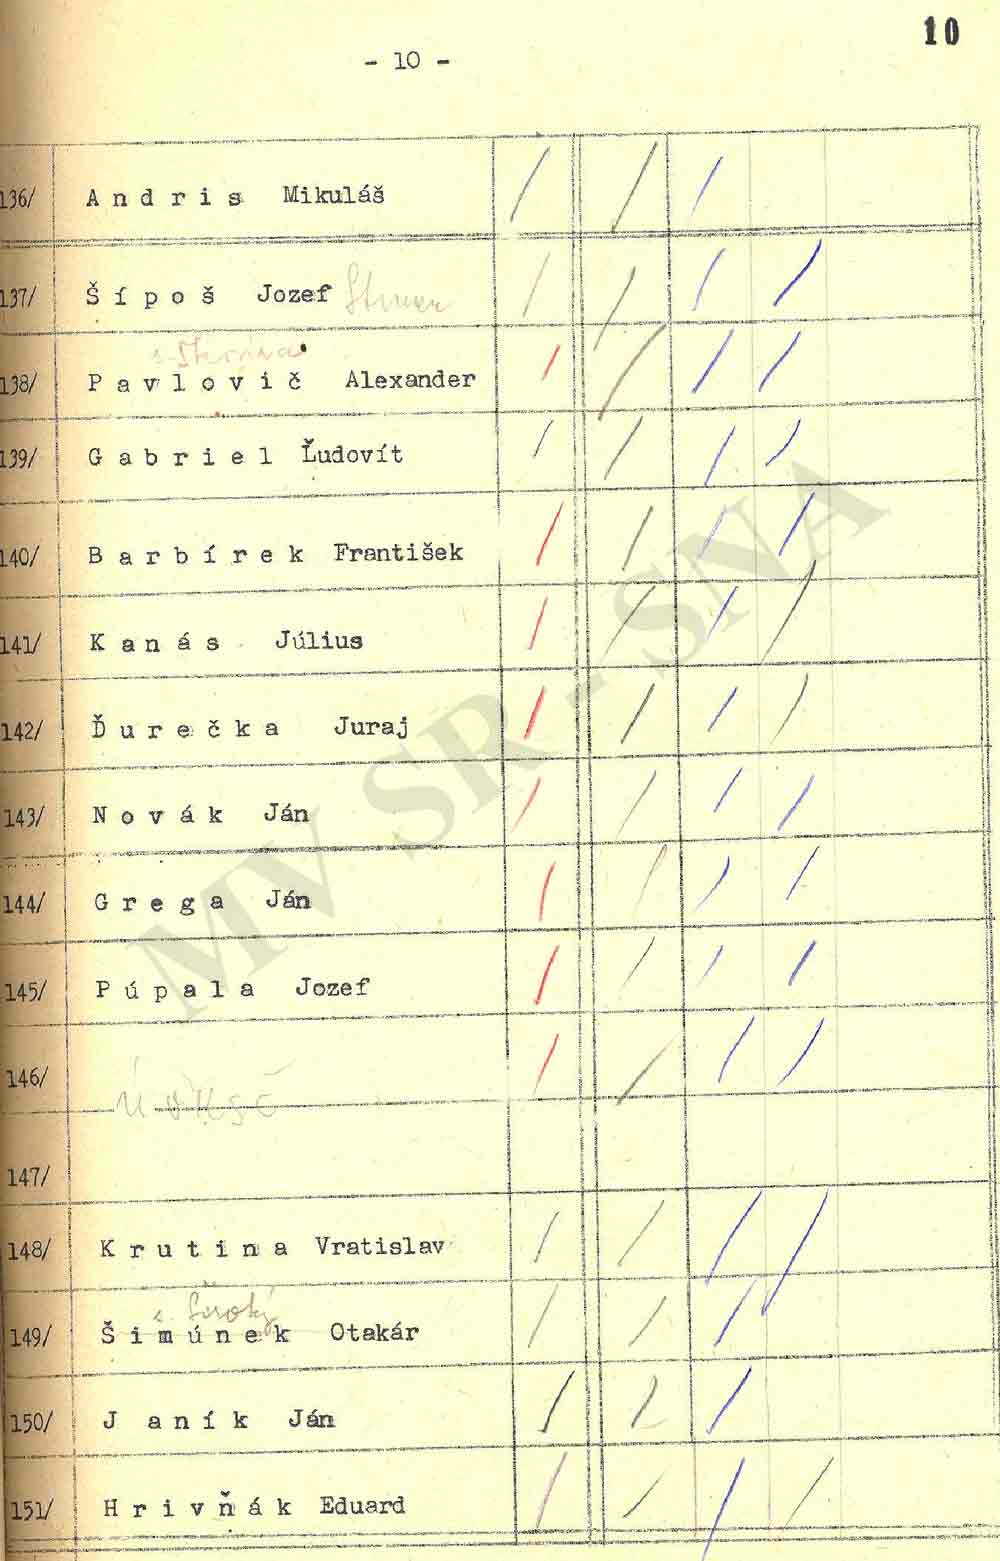 10
- 10 -
136/ Andris Mikuláš
137/ Šípoš Jozef
138/ Pavlovič Alexander
139/ Gabriel Ľudovít
140/ Barbírek František
141/ Kanás Július
142/ Ďurečka Juraj
143/ Novák Ján
144/ Grega Ján
145/ Púpala Jozef
146/
147/
148/ Krutina Vratislav
s. Široký
149/ Šimúnek Otakár
150/ Janík Ján
151/ Hrivňák Eduard
MV SR - SNA